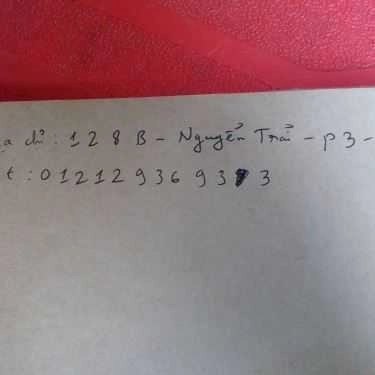 ạ chỉ: 128B - Nguyễn Trãi - P3 -
t: 012129369393